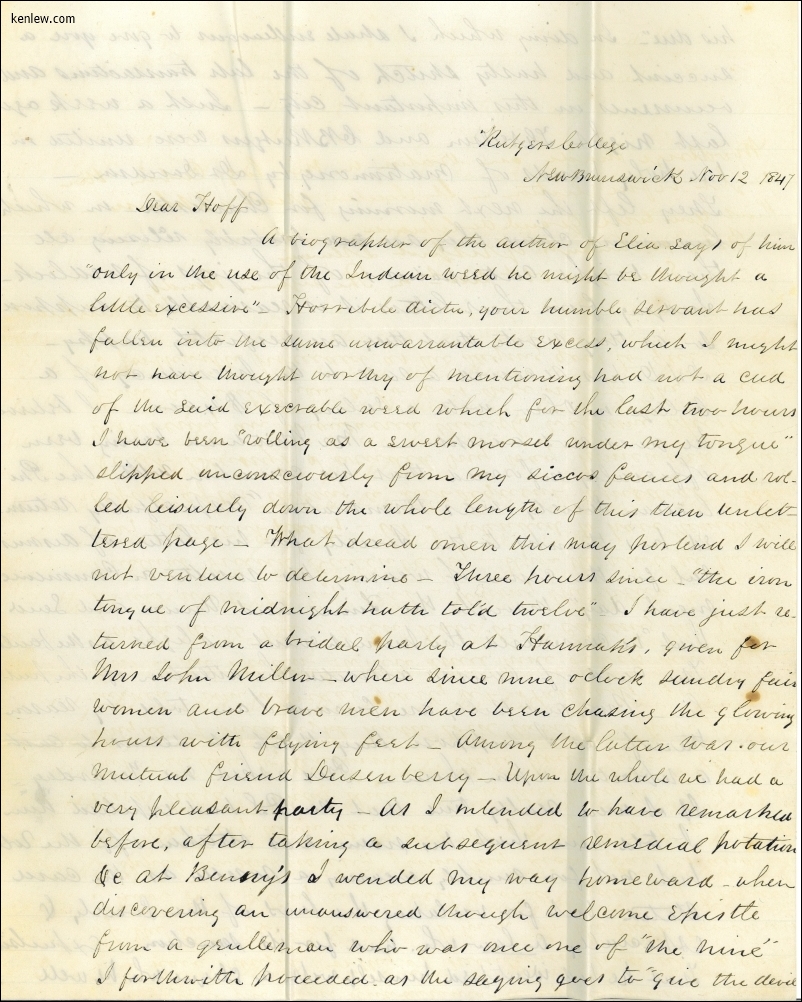 kenlew.com
Rutgers College
New Brunswick Nov 12 1847
Dear Hoff
A biographer of the author of Elia says of him
"only in the use of the Indian weed he might be thought a
little excessive" – Horribile dictu, your humble servant has
fallen into the same unwarrantable excess, which I might
not have thought worthy of mentioning had not a cud
of the said execrable weed which for the last two hours
I have been "rolling as a sweet morsel under my tongue"
slipped unconsciously from my siccos fauces and rol-
led leisurely down the whole length of this then unlet-
tered page – What dread omen this may portend I will
not venture to determine – Three hours since – "the iron
tongue of midnight hath told twelve" – I have just re-
turned from a bridal party at Hannah's, given for
Mrs John Miller – where since nine oclock sundry fair
women and brave men have been chasing the glowing
hours with flying feet – Among the latter was our
mutual friend Dusenberry – Upon the whole we had a
very pleasant party – As I intended to have remarked
before, after taking a subsequent remedial potation
&c at Benny's I wended my way homeward – when
discovering an unanswered though welcome epistle
from a gentleman who was once one of "the nine"
I forthwith proceeded as the saying goes to "give the devil